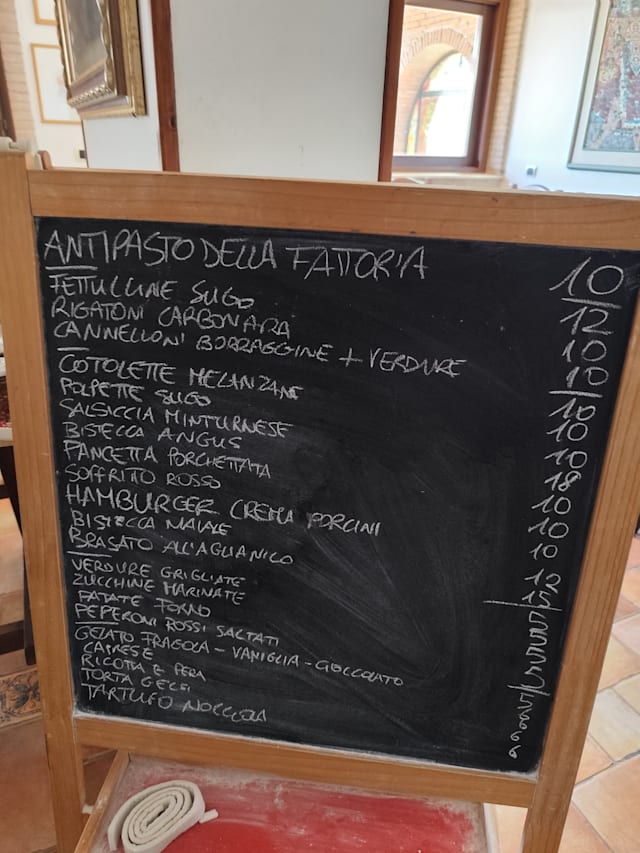 ANTIPASTO DELLA FATTORIA 10
FETTUCCINE SUGO 12
RIGATONI CARBONARA 10
CANNELLONI BORRAGGINE + VERDURE 10
COTOLETTE MELANZANE 10
POLPETTE SUGO 10
SALSICCIA MINTURNESE 10
BISTECCA ANGUS 18
PANCETTA PORCHETTATA 10
SOFFRITO ROSSO 10
HAMBURGER CREMA PORCINI 10
BISTECCA MAIALE 12
BRASATO ALL'AGLIANICO 15
VERDURE GRIGLIATE 5
ZUCCHINE MARINATE 5
PATATE FORNO 5
PEPERONI ROSSI SALTATI 5
GELATO FRAGOLA - VANIGLIA - CIOCCOLATO 5
CAPRESE 6
RICOTTA E PERA 6
TORTA GELSI 6
TARTUFO NOCCIOLA 6